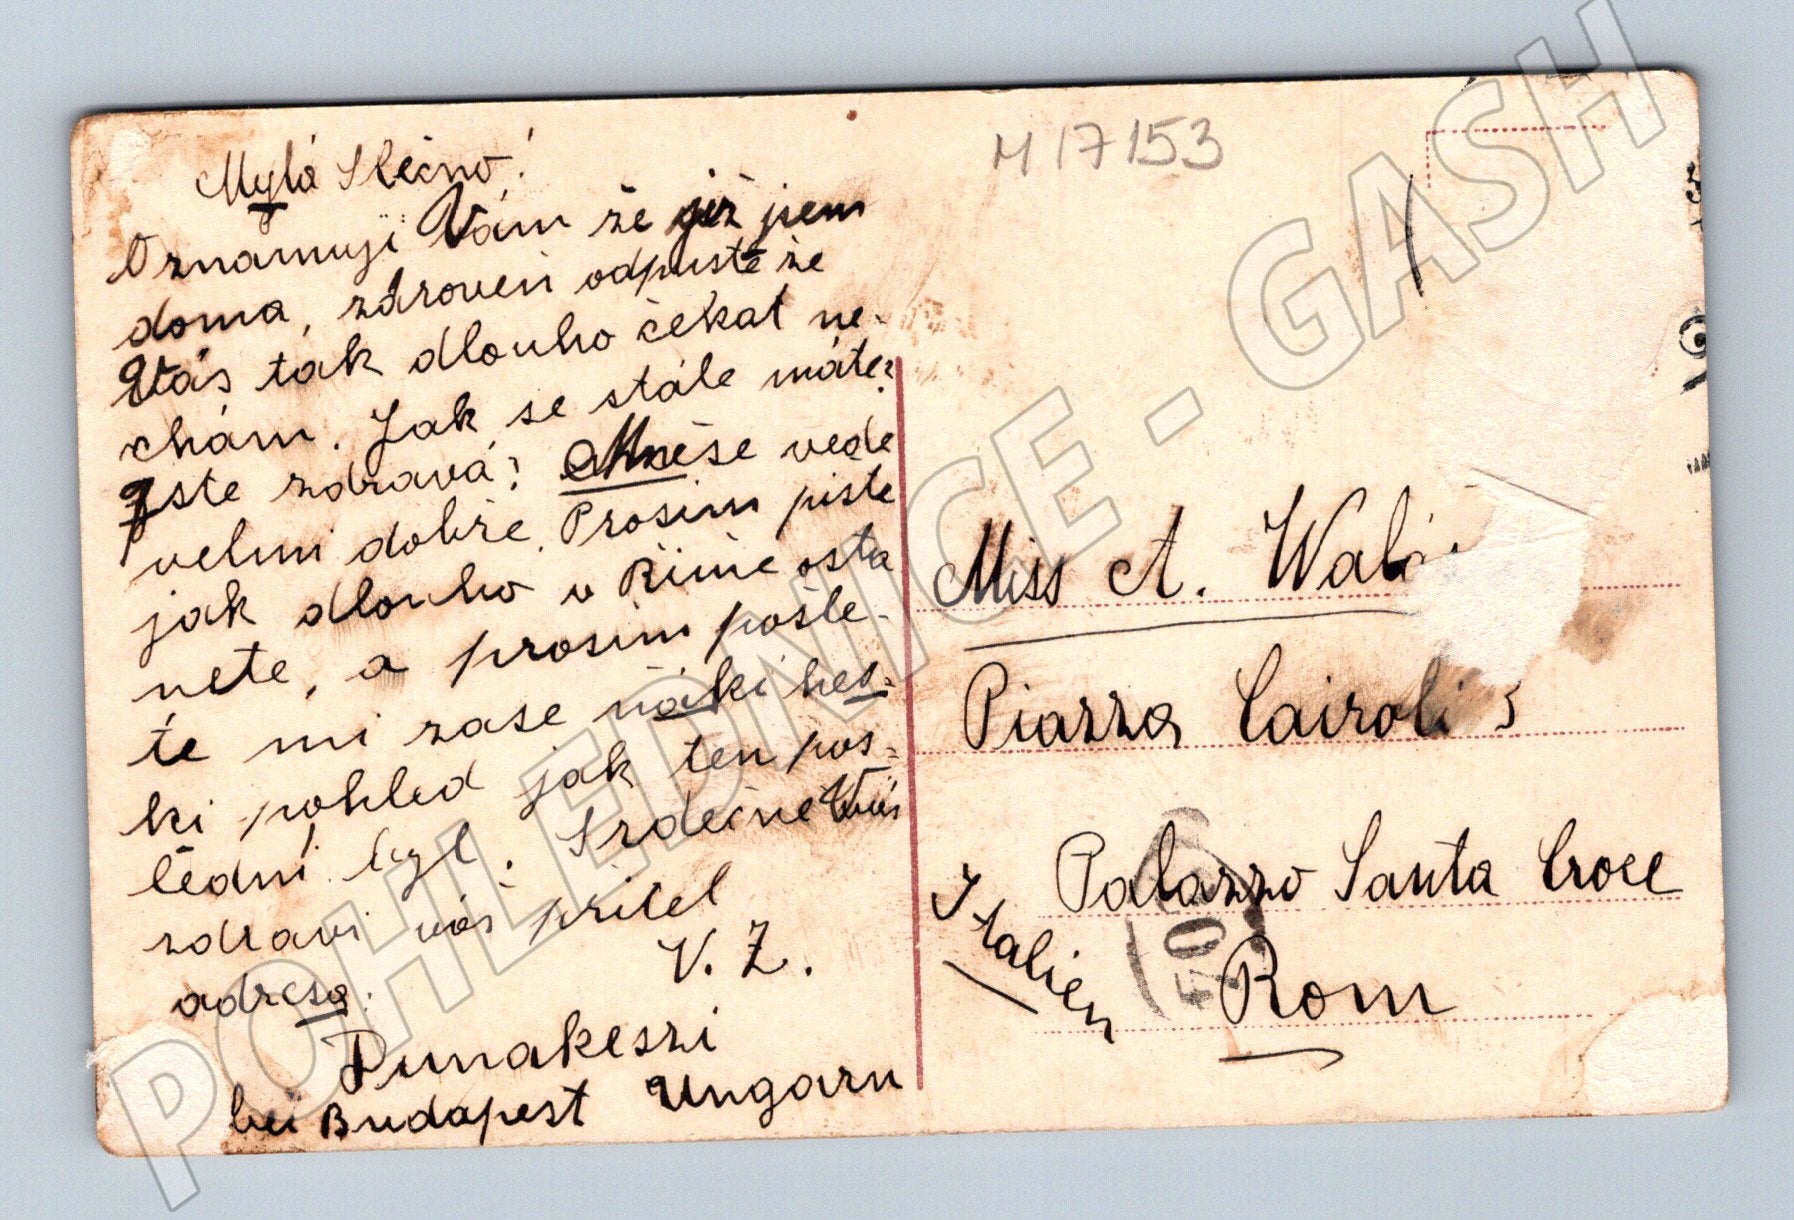 M 17153
Mylá Slečno!
Oznamuji Vám že již jsem
doma, zároveň odpustě že
Vás tak dlouho čekat ne-
chám. Jak se stále máte?
Jste zdravá? Mně se vede
velmi dobře. Prosim piste
jak dlouho v Římě osta
nete, a prosim pošle-
te mi zase náki hes-
ki pohled jak ten pos-
lední byl. Srdečně Vás
zdravi váš přítel
V. Z.
adresa:
Dunakeszi
bei Budapest Ungarn
Miss A.
Piazza Cairoli 3
Palazzo Santa Croce
Italien
Rom
POHLEDNICE - GASH